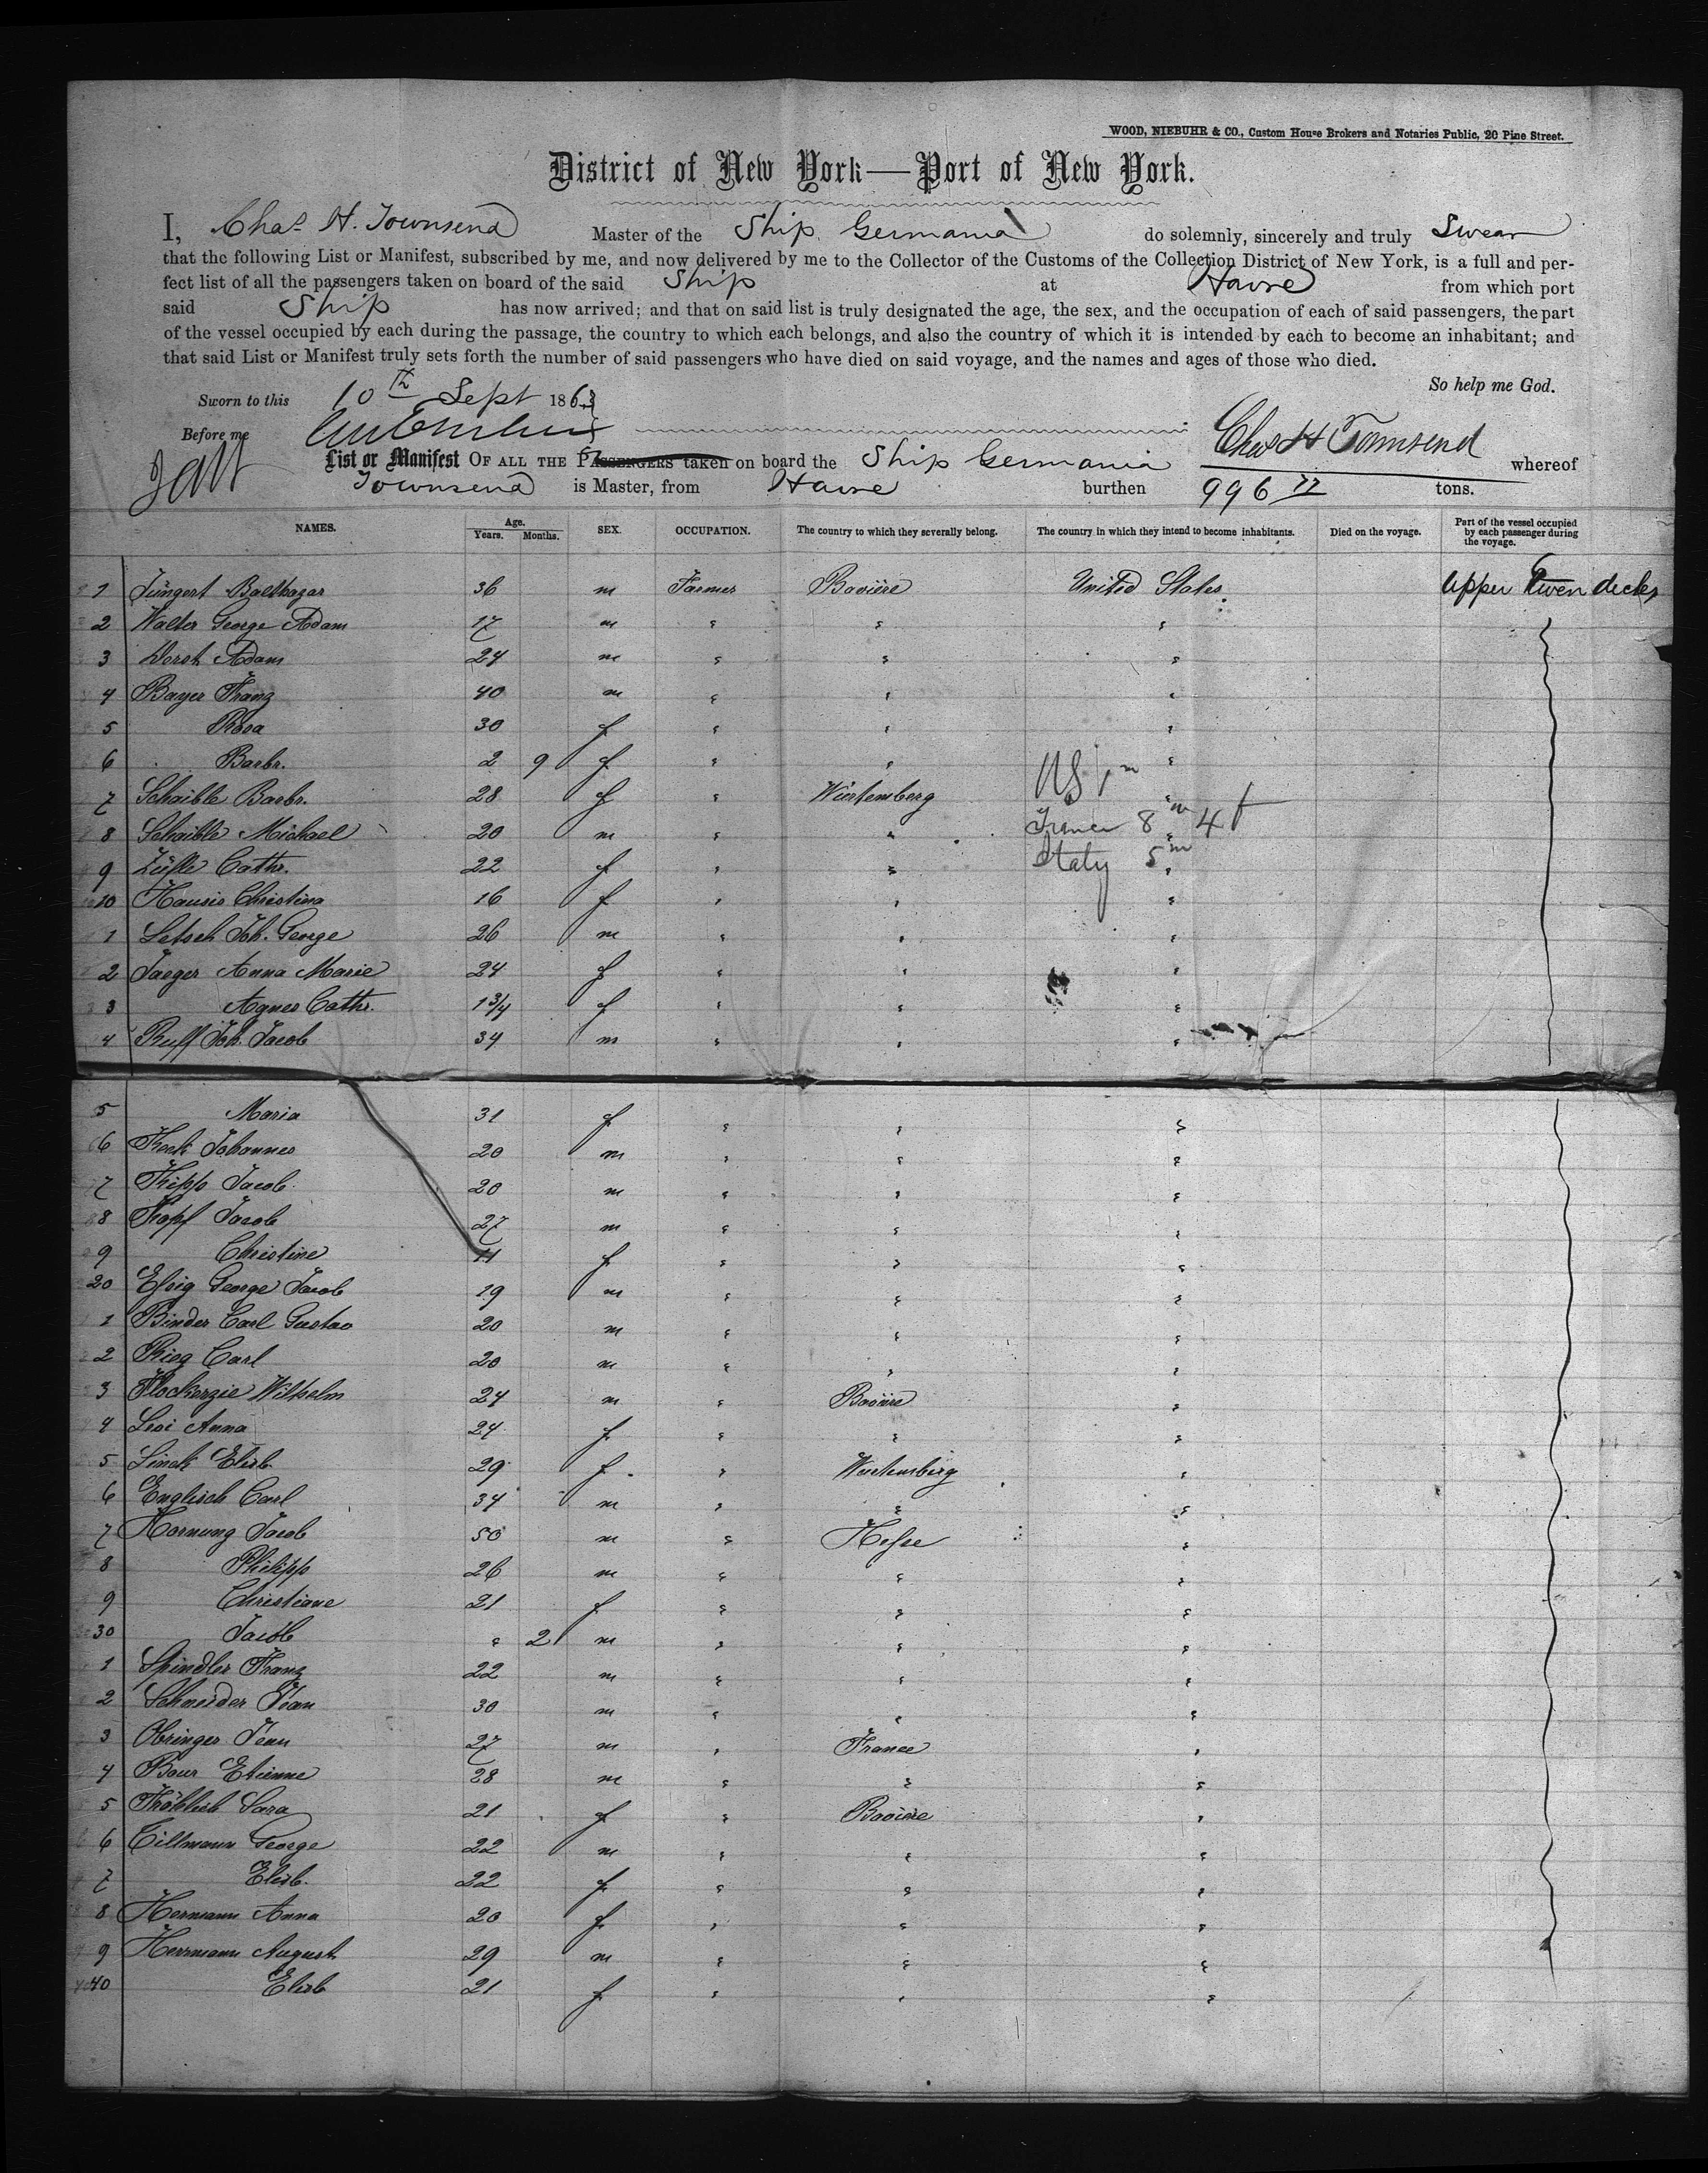 WOOD, NIEBUHR & CO., Custom House Brokers and Notaries Public, 20 Pine Street.
District of New York—Port of New York.
I, Chas H. Townsend Master of the Ship Germania do solemnly, sincerely and truly Swear
that the following List or Manifest, subscribed by me, and now delivered by me to the Collector of the Customs of the Collection District of New York, is a full and per-
fect list of all the passengers taken on board of the said Ship at Havre from which port
said Ship has now arrived; and that on said list is truly designated the age, the sex, and the occupation of each of said passengers, the part
of the vessel occupied by each during the passage, the country to which each belongs, and also the country of which it is intended by each to become an inhabitant; and
that said List or Manifest truly sets forth the number of said passengers who have died on said voyage, and the names and ages of those who died.
So help me God.
Sworn to this 10th Sept 1863
Before me Chas H Townsend
List or Manifest OF ALL THE PASSENGERS taken on board the Ship Germania whereof
Townsend is Master, from Havre burthen 996 77 tons.
NAMES. Age. Years. Months. SEX. OCCUPATION. The country to which they severally belong. The country in which they intend to become inhabitants. Died on the voyage. Part of the vessel occupied by each passenger during the voyage.
1 Jüngert Balthazar 36 m Farmer Bavière United States Upper tween decks
2 Walter George Adam 17 m
3 Dorsh Adam 24 m
4 Bayer Franz 40 m
5 Rosa 30 f
6 Barbr. 2 9 f
7 Schaible Barbr. 28 f Würtemberg US 1 m
8 Schaible Michael 20 m France 8 m 4 f
9 Züfle Cathr. 22 f Italy 5 m
10 Hausis Christina 16 f
1 Letsch Joh. George 26 m
2 Jaeger Anna Marie 24 f
3 Agnes Cathr. 1 3/4 f
4 Ruff Joh. Jacob 34 m
5 Maria 31 f
6 Keck Johannes 20 m
7 Kipp Jacob 20 m
8 Kopf Jacob 27 m
9 Christine 11 f
20 Essig George Jacob 19 m
1 Binder Carl Gustav 20 m
2 Rieg Carl 20 m
3 Flockerzie Wilhelm 24 m Bavière
4 Levi Anna 24 f
5 Linck Elisb. 29 f Würtemberg
6 Englisch Carl 34 m
7 Hornung Jacob 50 m Hesse
8 Philipp 26 m
9 Christiane 21 f
30 Jacob 2 m
1 Spindler Franz 22 m
2 Schneider Jean 30 m
3 Obringer Jean 27 m France
4 Bour Etienne 28 m
5 Fröhlich Sara 21 f Bavière
6 Tillmann George 22 m
7 Elisb. 22 f
8 Hermann Anna 20 f
9 Herrmann August 29 m
40 Elisb 21 f